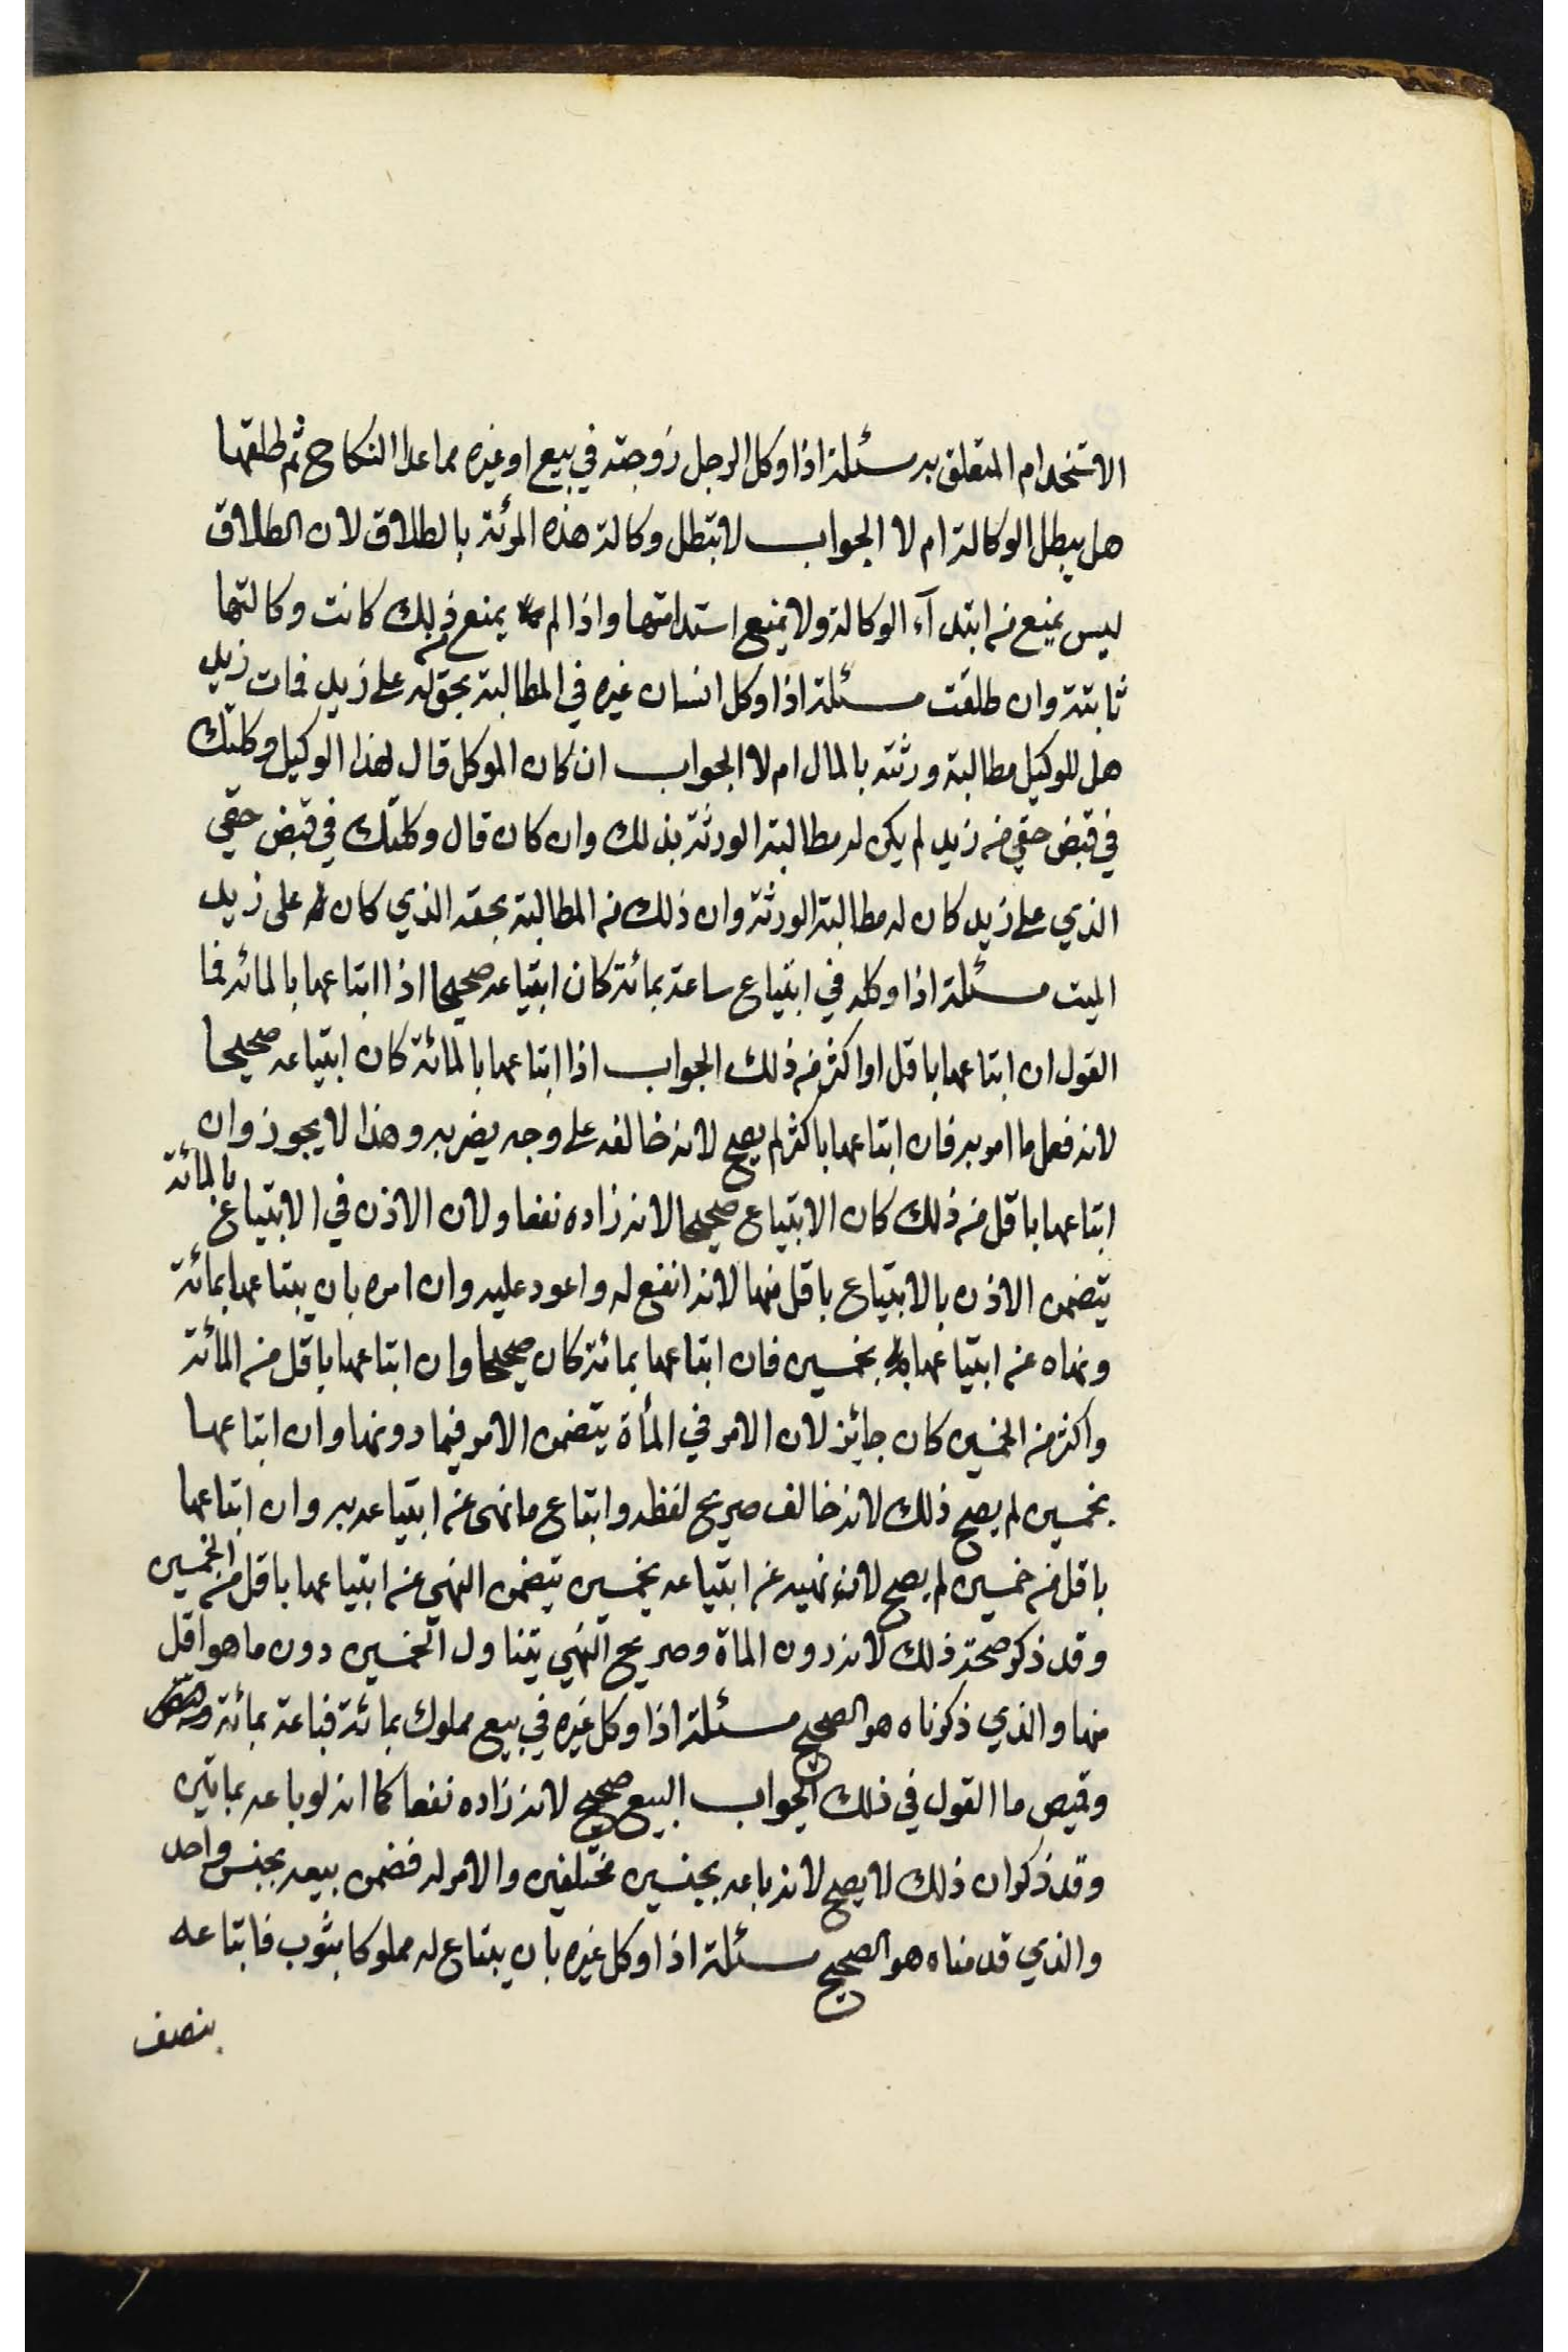 الاستخدام المتعلق به مسئلة اذا وكل الرجل زوجته في بيع او غيره مما عدا النكاح ثم طلقها
هل يبطل الوكالة ام لا الجواب لا تبطل وكالة هذه المرئة بالطلاق لان الطلاق
ليس يمنع من ابتدآء الوكالة ولا يمنع استدامتها واذا لم يمنع من ذلك كانت وكالتها
ثابتة وان طلقت مسئلة اذا وكل انسان غيره في المطالبة بحق له على زيد فمات زيد
هل للوكيل مطالبة ورثته بالمال ام لا الجواب ان كان الموكل قال لهذا الوكيل وكلتك
في قبض حقي من زيد لم يكن له مطالبة الورثة بذلك وان كان قال وكلتك في قبض حقي
الذي على زيد كان له مطالبة الورثة وان ذلك من المطالبة بحقه الذي كان له على زيد
الميت مسئلة اذا وكله في ابتياع ساعة بمائة كان ابتياعه صحيحا اذا ابتاعها بالمائه فما
القول ان ابتاعها باقل او اكثر من ذلك الجواب اذا ابتاعها بالمائة كان ابتياعه صحيحا
لانه فعل ما امر به فان ابتاعها باكثر لم يصح لانه خالفه على وجه يضر به وهذا لا يجوز وان
ابتاعها باقل من ذلك كان الابتياع صحيحا لانه زاده نفعا ولان الاذن في الابتياع بالمائة
يتضمن الاذن بالابتياع باقل منها لانه انفع له واعود عليه وان امره بان يبتاعها بمائة
ونهاه عن ابتياعها بخمسين فان ابتاعها بمائة كان صحيحا وان ابتاعها باقل من المائة
واكثر من الخمسين كان جايز لان الامر في المأة يتضمن الامر فيما دونها وان ابتاعها
بخمسين لم يصح ذلك لانه خالف صريح لفظه وابتاع ما نهى عن ابتياعه به وان ابتاعها
باقل من خمسين لم يصح لان نهيه عن ابتياعه بخمسين يتضمن النهي عن ابتياعها باقل من الخمسين
وقد ذكر صحة ذلك لانه دون الماة وصريح النهي يتناول الخمسين دون ما هو اقل
منها والذي ذكرناه هو الصحيح مسئلة اذا وكل غيره في بيع مملوك بمائة فباعه بمائة
وقميص ما القول في ذلك الجواب البيع صحيح لانه زاده نفعا كما انه لو باعه بماتين
وقد ذكر ان ذلك لا يصح لانه باعه بجنسين مختلفين والامر له فضمن بيعه بجنس واحد
والذي قدمناه هو الصحيح مسئلة اذا وكل غيره بان يبتاع له مملوكا بثوب فابتاعه
بنصف